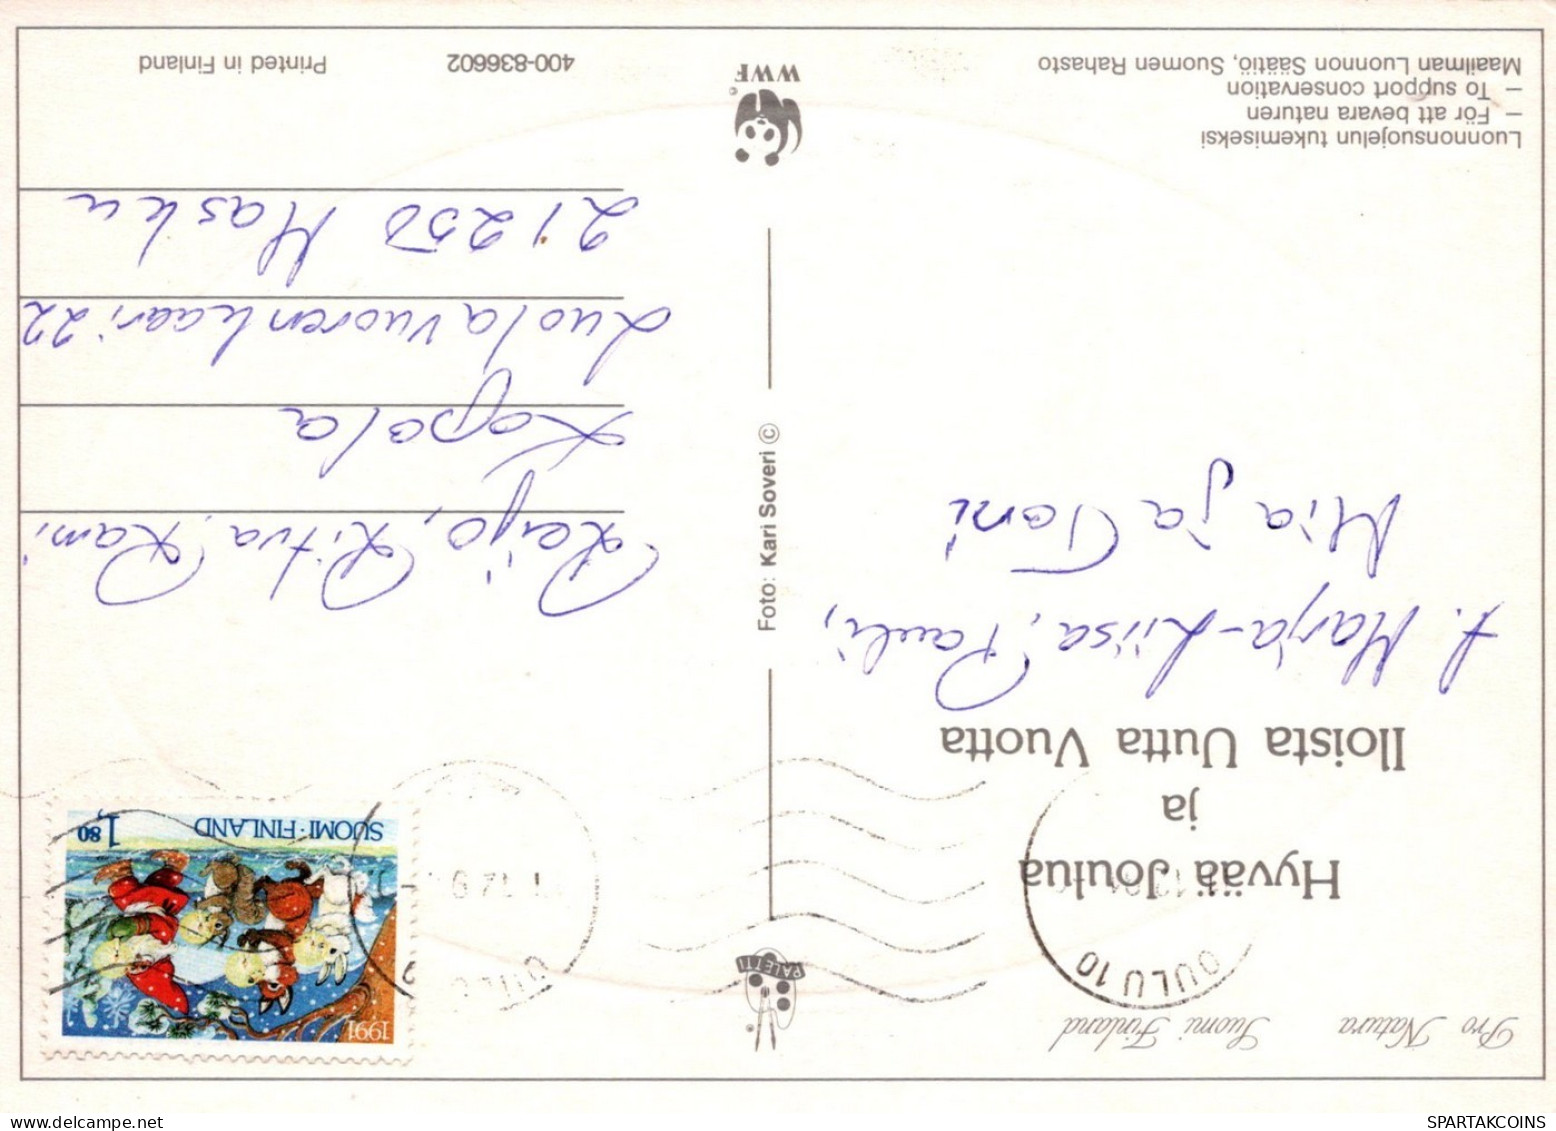 Pro Natura Suomi Finland
PALETTI
1991
SUOMI·FINLAND
1,80
OULU 10
Hyvää Joulua
ja
Iloista Uutta Vuotta
t. Marja-Liisa, Pauli,
Mia ja Toni
Reijo, Ritva, Rami
Kopola
Luolavuorenkaari 22
21250 Masku
Foto: Kari Soveri ©
Luonnonsuojelun tukemiseksi
– För att bevara naturen
– To support conservation
Maailman Luonnon Säätiö, Suomen Rahasto
WWF
400-836602
Printed in Finland
SPARTAKCOINS
www.delcampe.net